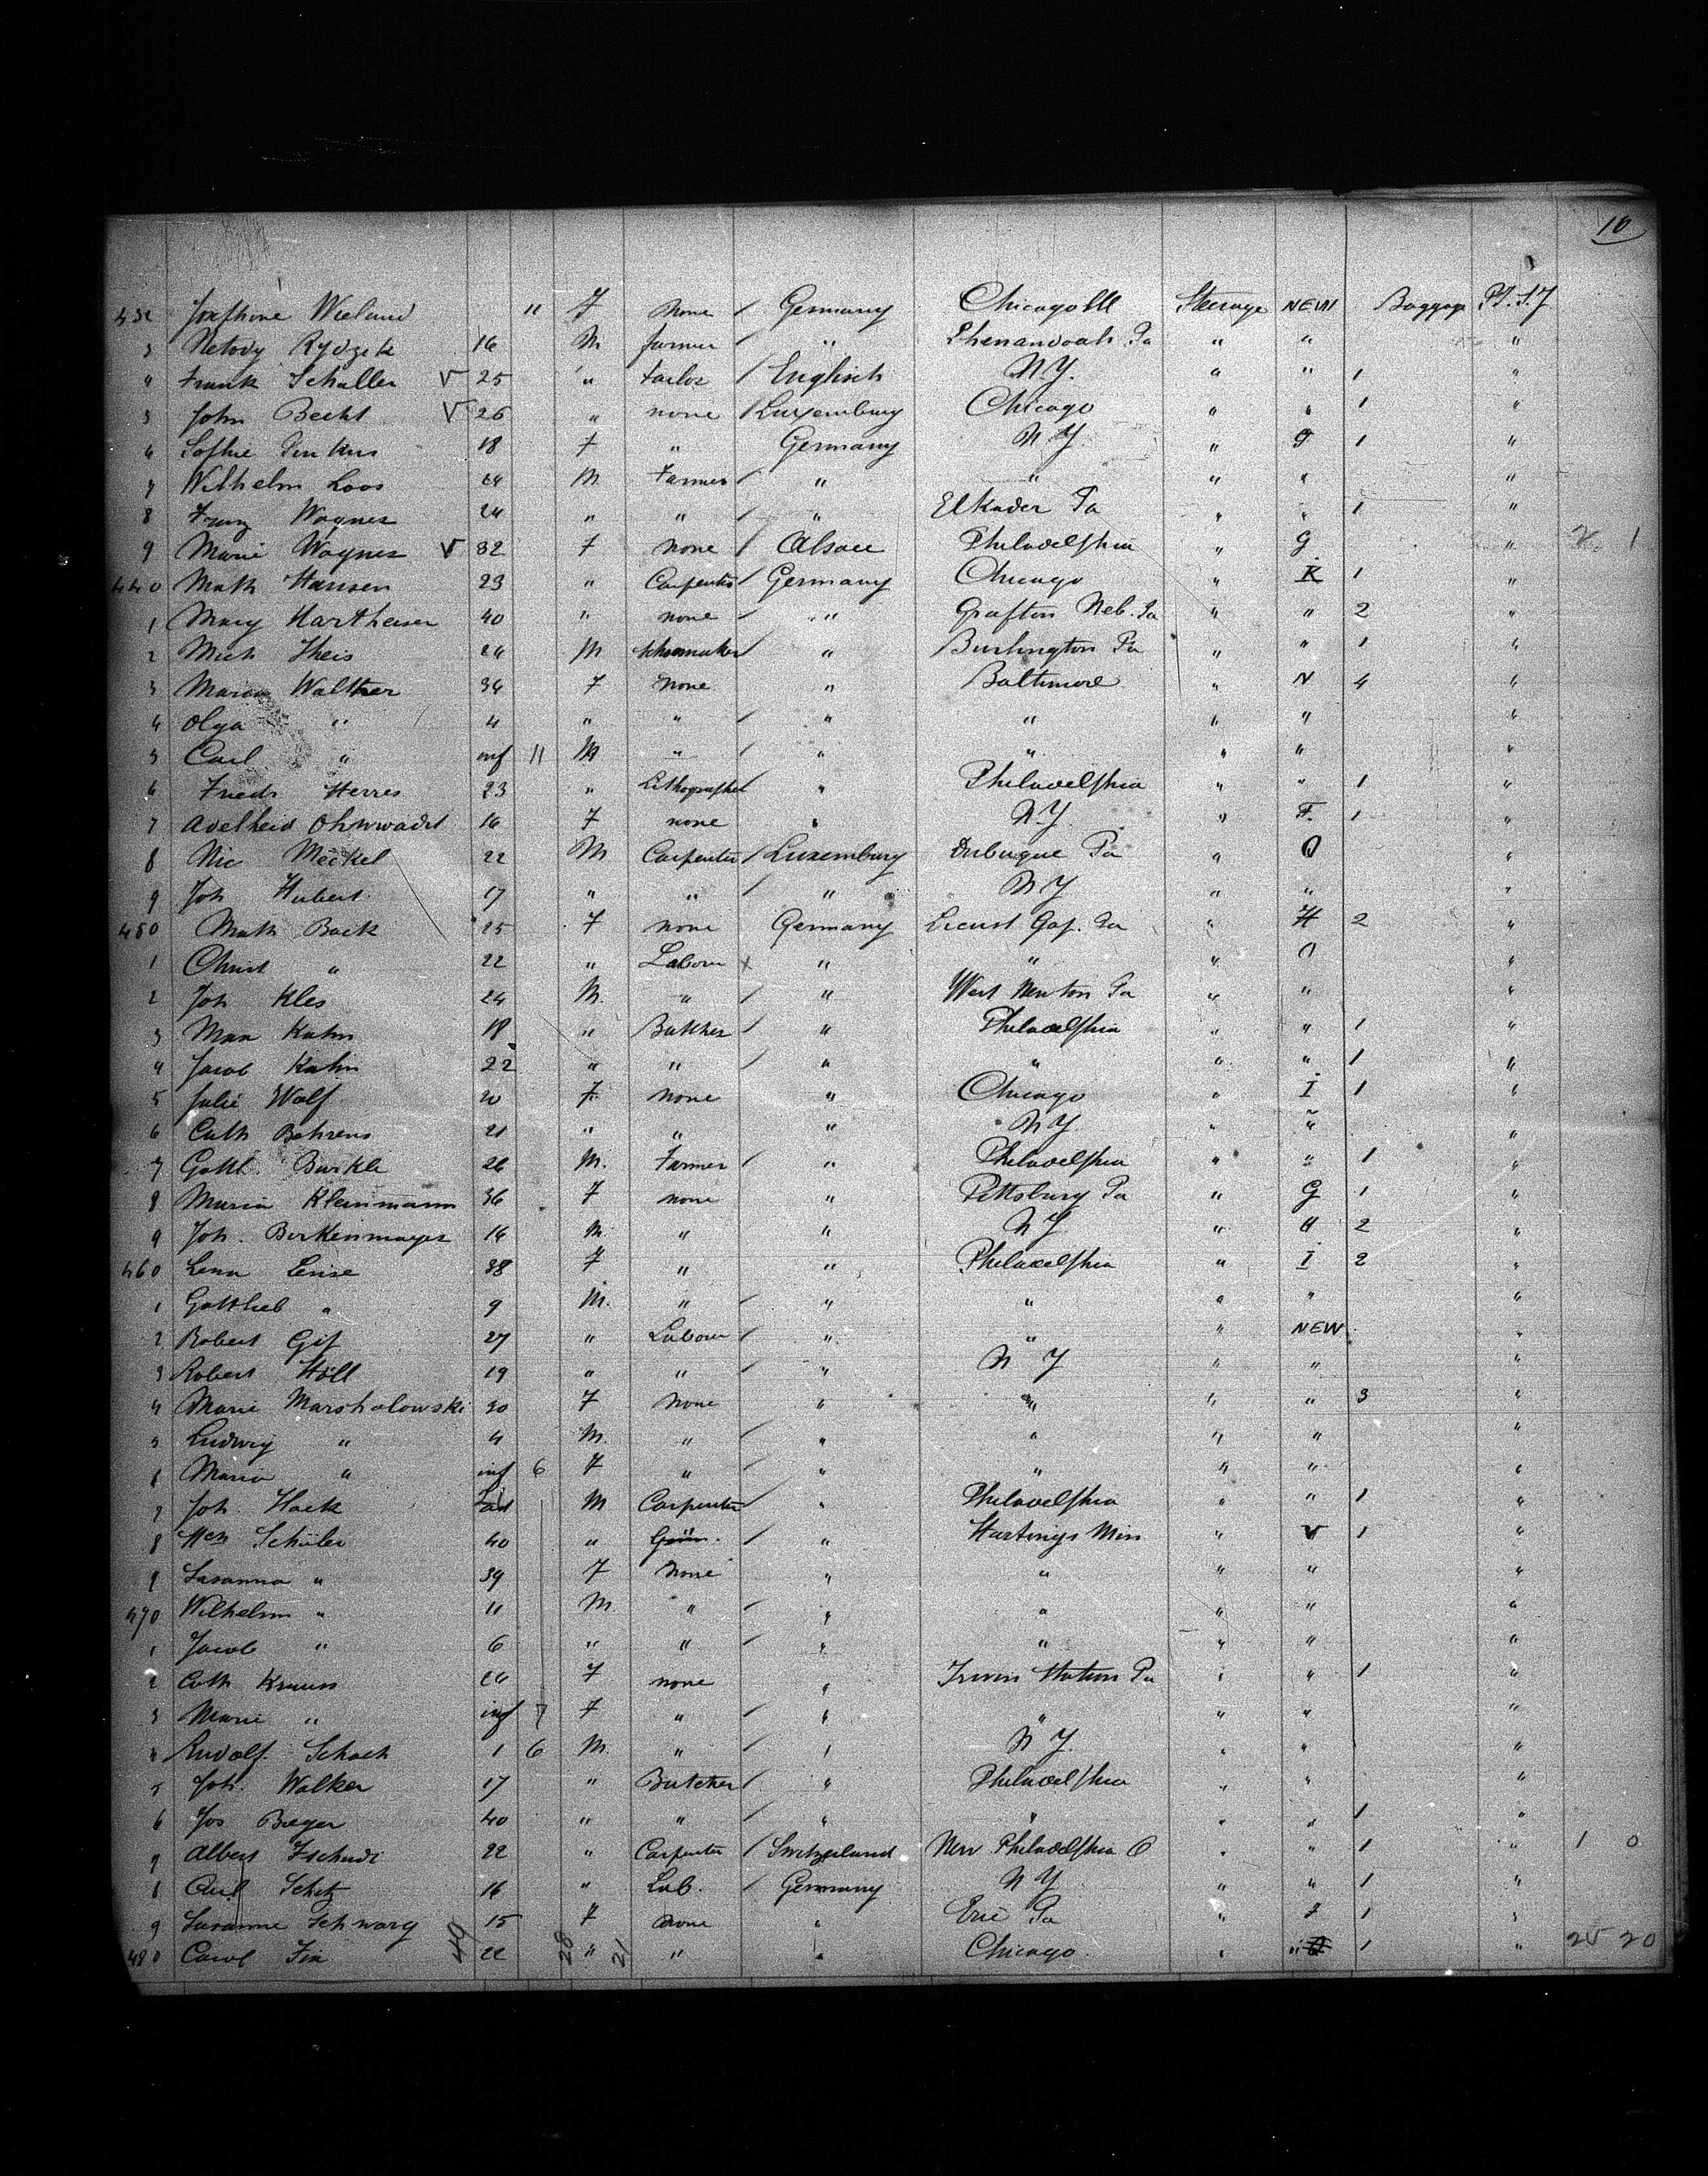 10
432 Josephine Wieland 11 F None / Germany Chicago Ill Steerage NEW Baggage P.S.J
3 Metody Rydzek 16 M farmer / " Shenandoah Pa " " "
4 Frank Schaller V 25 " Tailor / Englisch N.Y. " " 1 "
5 John Becht V 26 " none / Luxemburg Chicago " " 1 "
6 Sofhie 18 F " Germany N Y " 1 "
7 Wilhelm Loos 64 M Farmer / " " " " "
8 Franz Wagner 24 " " / " Elkader Ia " " 1 "
9 Marie Wagner V 32 F None / Alsace Philadelphia " G " 2 1
440 Math Hansen 23 " Carpenter / Germany Chicago " K 1 "
1 Mary Hartheiser 40 " none / " Grafton Neb. " " 2 "
2 Mich Theis 24 M Schumaker / " Burlington " " 1 "
3 Maria Walther 34 F None " Baltimore " N 4 "
4 Olga " 4 " " / " " " " "
5 Carl " inf 11 M " / " " " " "
6 Friedr Herres 23 " Lithographer / " Philadelphia " " 1 "
7 Adelheid 16 F none " N.Y. " F. 1 "
8 Nic Meckel 22 M Carpenter / Luxemburg Dubuque " O "
9 Joh Hubert 17 " " / " N Y " " "
450 Math Back 25 F none Germany Locust Gap. Pa " H 2 "
1 Christ " 22 " Labour X " " " O "
2 Joh Kles 24 M. " / " West Newton Pa " " "
3 Max Kahn 18 " Butcher / " Philadelphia " " 1 "
4 Jacob Kahn 22 " " / " " " " 1 "
5 Julie Wolf 20 F none " Chicago " I 1 "
6 Cath Behrens 21 " " " N Y " " "
7 Gottl. Burkle 26 M. Farmer / " Philadelphia " " 1 "
8 Maria Kleinmann 36 F none " Pittsburg Pa " G 1 "
9 Joh. Birkenmayer 16 M. " " N Y " " 2 "
460 Lena Leise 38 F " " Philadelphia " I 2 "
1 Gottlieb " 9 M. " / " " " " "
2 Robert 27 " Labour / " " " NEW "
3 Robert Höll 19 " " / " N Y " " "
4 Marie Marshalowski 30 F None " " " " 3 "
5 Ludwig " 4 M. " / " " " " "
6 Maria " inf 6 F " / " " " " "
7 Joh Hack M Carpenter / " Philadelphia " " 1 "
8 Schüler 40 " / " Hastings Min " V 1 "
9 Susanna " 39 F None " " " " "
470 Wilhelm " 11 M. " / " " " " "
1 Jacob " 6 " " / " " " " "
2 Cath Krauss 26 F none " Irwin Station Pa " " 1 "
3 Marie " inf 7 F " / " " " " "
4 Rudolf Schach 1 6 M. " / " N Y. " " "
5 Joh. Walker 17 " Butcher / " Philadelphia " " "
6 Jos Beyer 40 " " / " " " " 1 "
7 Albert Tschudi 22 " Carpenter / Switzerland New Philadelphia O " " 1 " 1 0
8 Carl Schitz 16 " Lab. / Germany N Y " " 1 "
9 Susanne Schwarg 15 F None " Erie Pa " 1 "
480 Carol Fix 22 " " " Chicago. " " 1 " 25 20
49 28 21